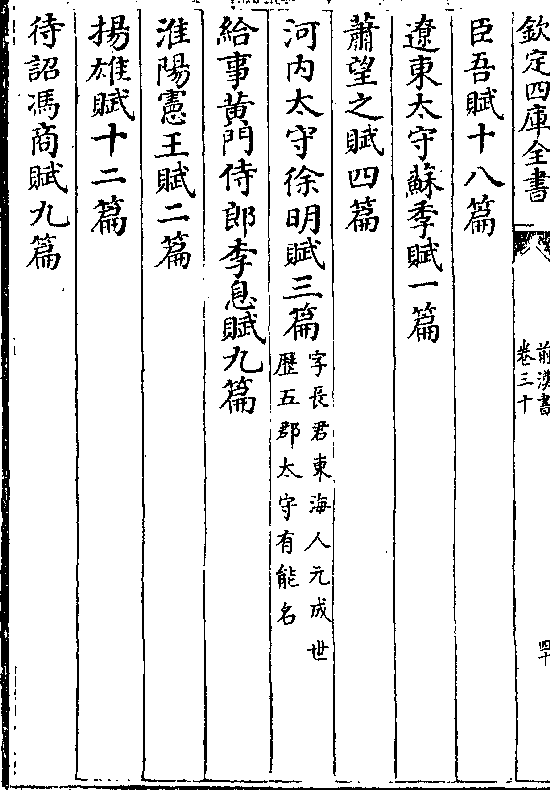 欽定四庫全書
前漢書
卷三十
四十
臣吾賦十八篇
遼東太守蘇季賦一篇
蕭望之賦四篇
河内太守徐明賦三篇
字長君東海人元成世
歷五郡太守有能名
給事黄門侍郎李息賦九篇
淮陽憲王賦二篇
揚雄賦十二篇
待詔馮商賦九篇